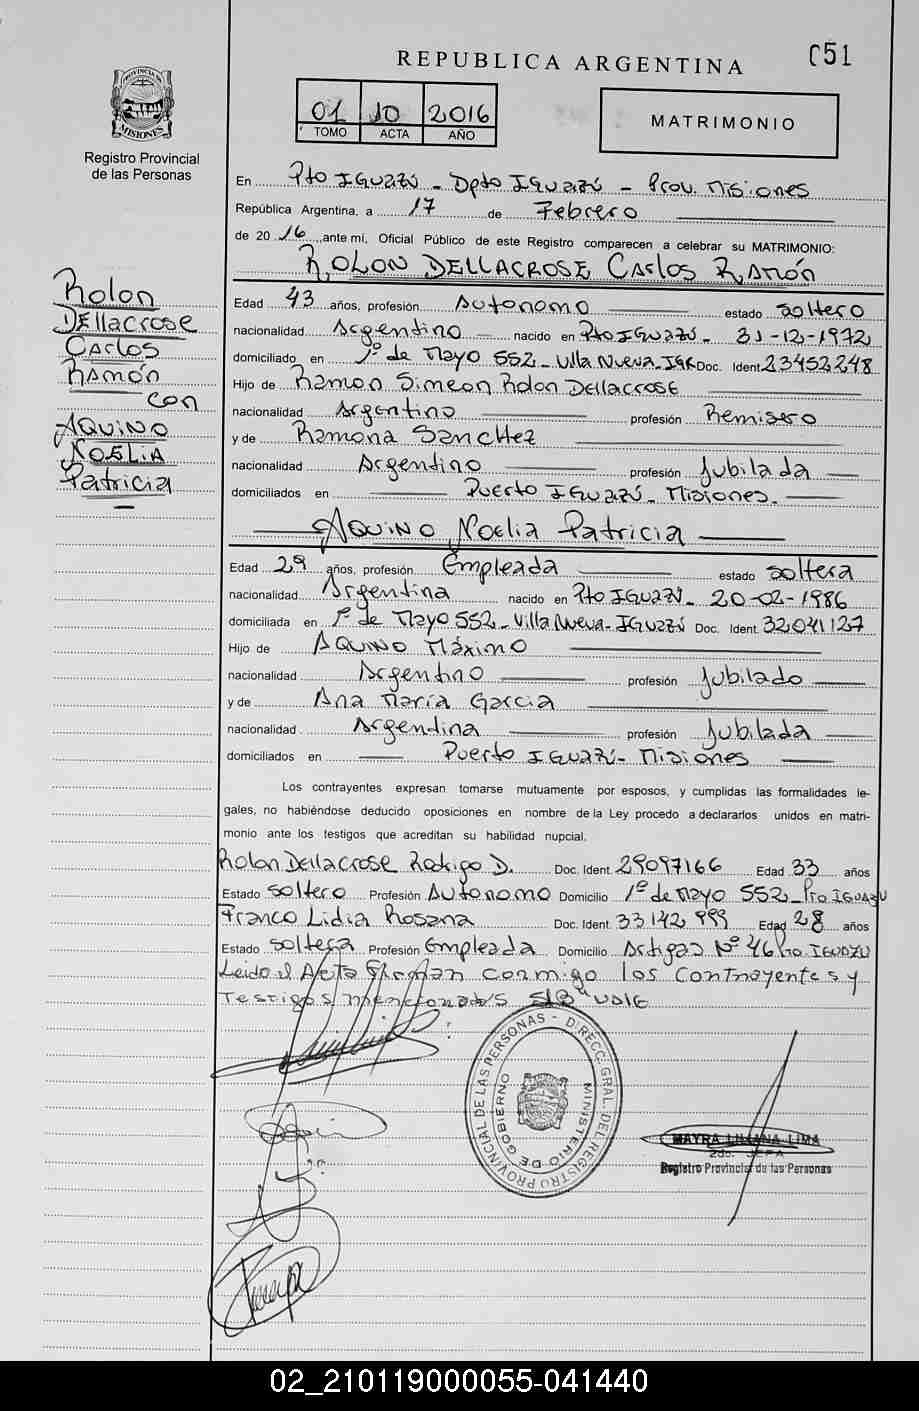 REPUBLICA ARGENTINA
C51
PROVINCIA DE MISIONES
Registro Provincial
de las Personas
01 10 2016
TOMO ACTA AÑO
MATRIMONIO
En Pto IGUAZÚ - Dpto IGUAZÚ - Prov. Misiones
República Argentina, a 17 de Febrero
de 20 16 ,ante mí, Oficial Público de este Registro comparecen a celebrar su MATRIMONIO:
ROLON DELLACROSE Carlos RAMÓN
Rolon
DEllacrose
Carlos
RAMÓN
con
AQUINO
NOELIA
Patricia
Edad 43 años, profesión Autonomo estado soltero
nacionalidad Argentino nacido en Pto IGUAZÚ - 31-12-1972
domiciliado en 1º de Mayo 552 - Villa Nueva - IGR Doc. Ident 23452248
Hijo de Ramon Simeon Rolon Dellacrose
nacionalidad Argentino profesión Remisero
y de Ramona Sanchez
nacionalidad Argentino profesión Jubilada
domiciliados en Puerto IGUAZÚ - Misiones.
AQUINO Noelia Patricia
Edad 29 años, profesión Empleada estado soltera
nacionalidad Argentina nacido en Pto IGUAZÚ - 20-02-1986
domiciliada en 1º de Mayo 552 - Villa Nueva - IGUAZÚ Doc. Ident 32041127
Hijo de AQUINO Máximo
nacionalidad Argentino profesión Jubilado
y de Ana María Garcia
nacionalidad Argentina profesión Jubilada
domiciliados en Puerto IGUAZÚ - Misiones
Los contrayentes expresan tomarse mutuamente por esposos, y cumplidas las formalidades le-
gales, no habiéndose deducido oposiciones en nombre de la Ley procedo a declararlos unidos en matri-
monio ante los testigos que acreditan su habilidad nupcial.
Rolon Dellacrose Rodrigo D. Doc. Ident 29097166 Edad 33 años
Estado soltero Profesión Autonomo Domicilio 1º de Mayo 552 - Pto IGUAZU
Franco Lidia Rosana Doc. Ident 33142999 Edad 28 años
Estado soltera Profesión Empleada Domicilio Artigas Nº 46 Pto. IGUAZU
Leido el Acta Firman conmigo los Contrayentes y
Testigos mencionados
REGISTRO PROVINCIAL DE LAS PERSONAS - DIRECC. GRAL. DEL
MINISTERIO DE GOBIERNO
MAYRA LILIANA LIMA
2do. JEFA
Registro Provincial de las Personas
02_210119000055-041440